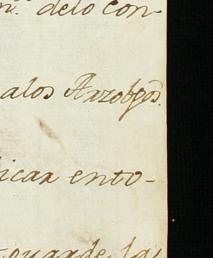 n.ª delo con-
alos Arzobpos.
icar ento-
guarde la